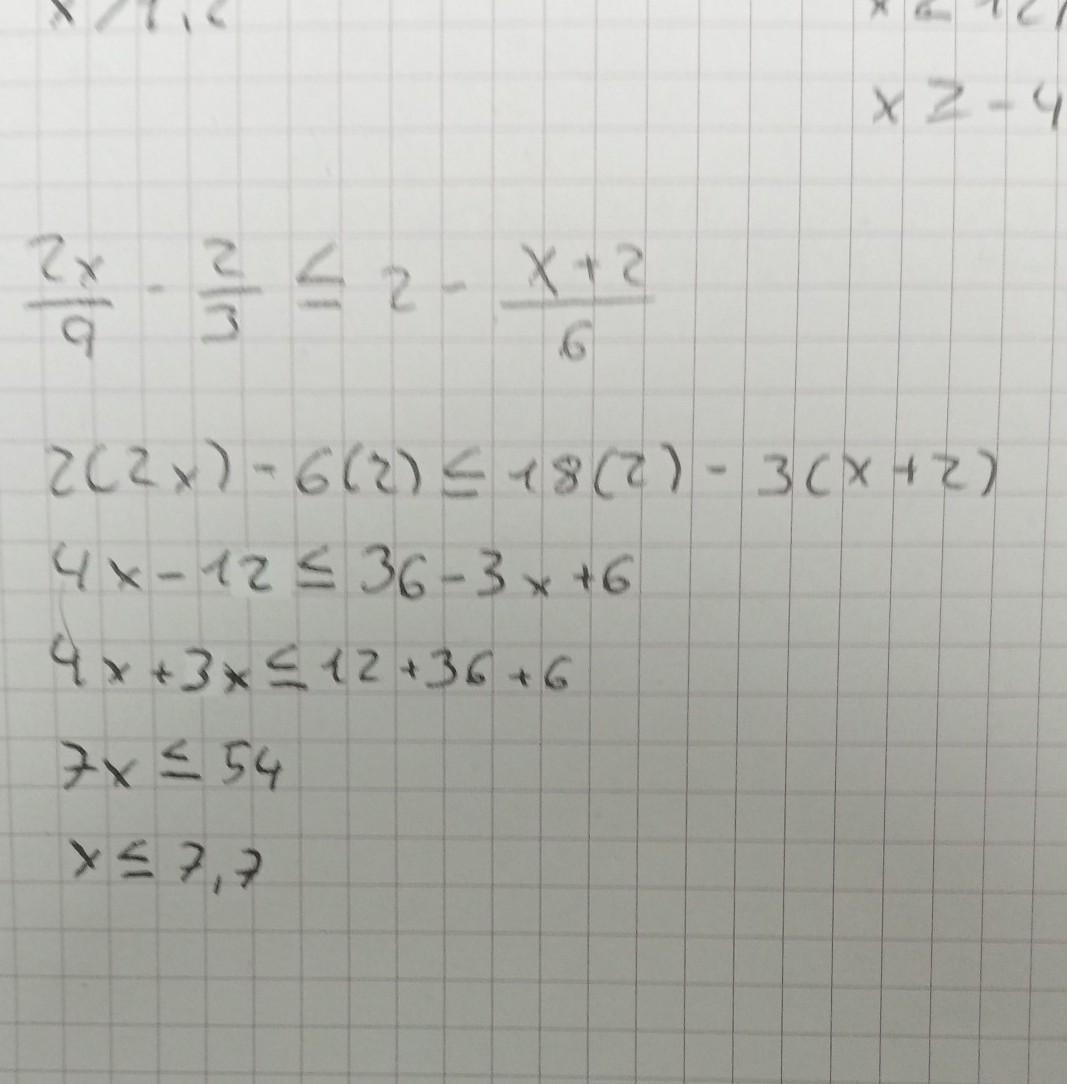 x ≥ -4
2x/9 - 2/3 ≤ 2 - x+2/6
2(2x) - 6(2) ≤ 18(2) - 3(x+2)
4x - 12 ≤ 36 - 3x + 6
4x + 3x ≤ 12 + 36 + 6
7x ≤ 54
x ≤ 7,7